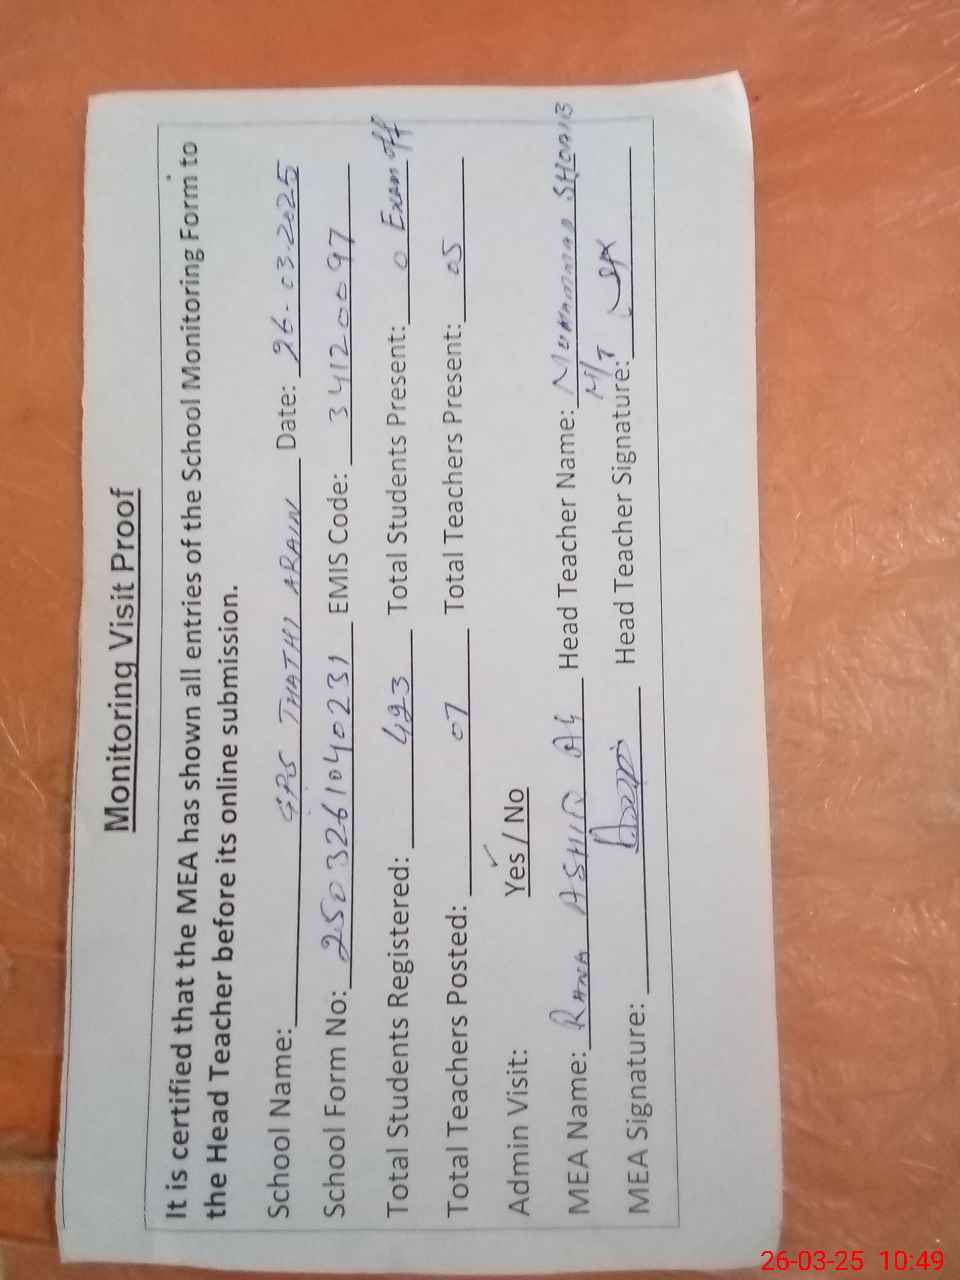 Monitoring Visit Proof
It is certified that the MEA has shown all entries of the School Monitoring Form to
the Head Teacher before its online submission.
School Name: GPS THATHI ARAIN Date: 26-03-2025
School Form No: 2503261040231 EMIS Code: 34120097
Total Students Registered: 493 Total Students Present: 0 Exam off
Total Teachers Posted: 07 Total Teachers Present: 05
Admin Visit: Yes / No
MEA Name: RANA ASHIQ Ali Head Teacher Name: MUHAMMAD SHOAIB
MEA Signature: Head Teacher Signature:
26-03-25 10:49